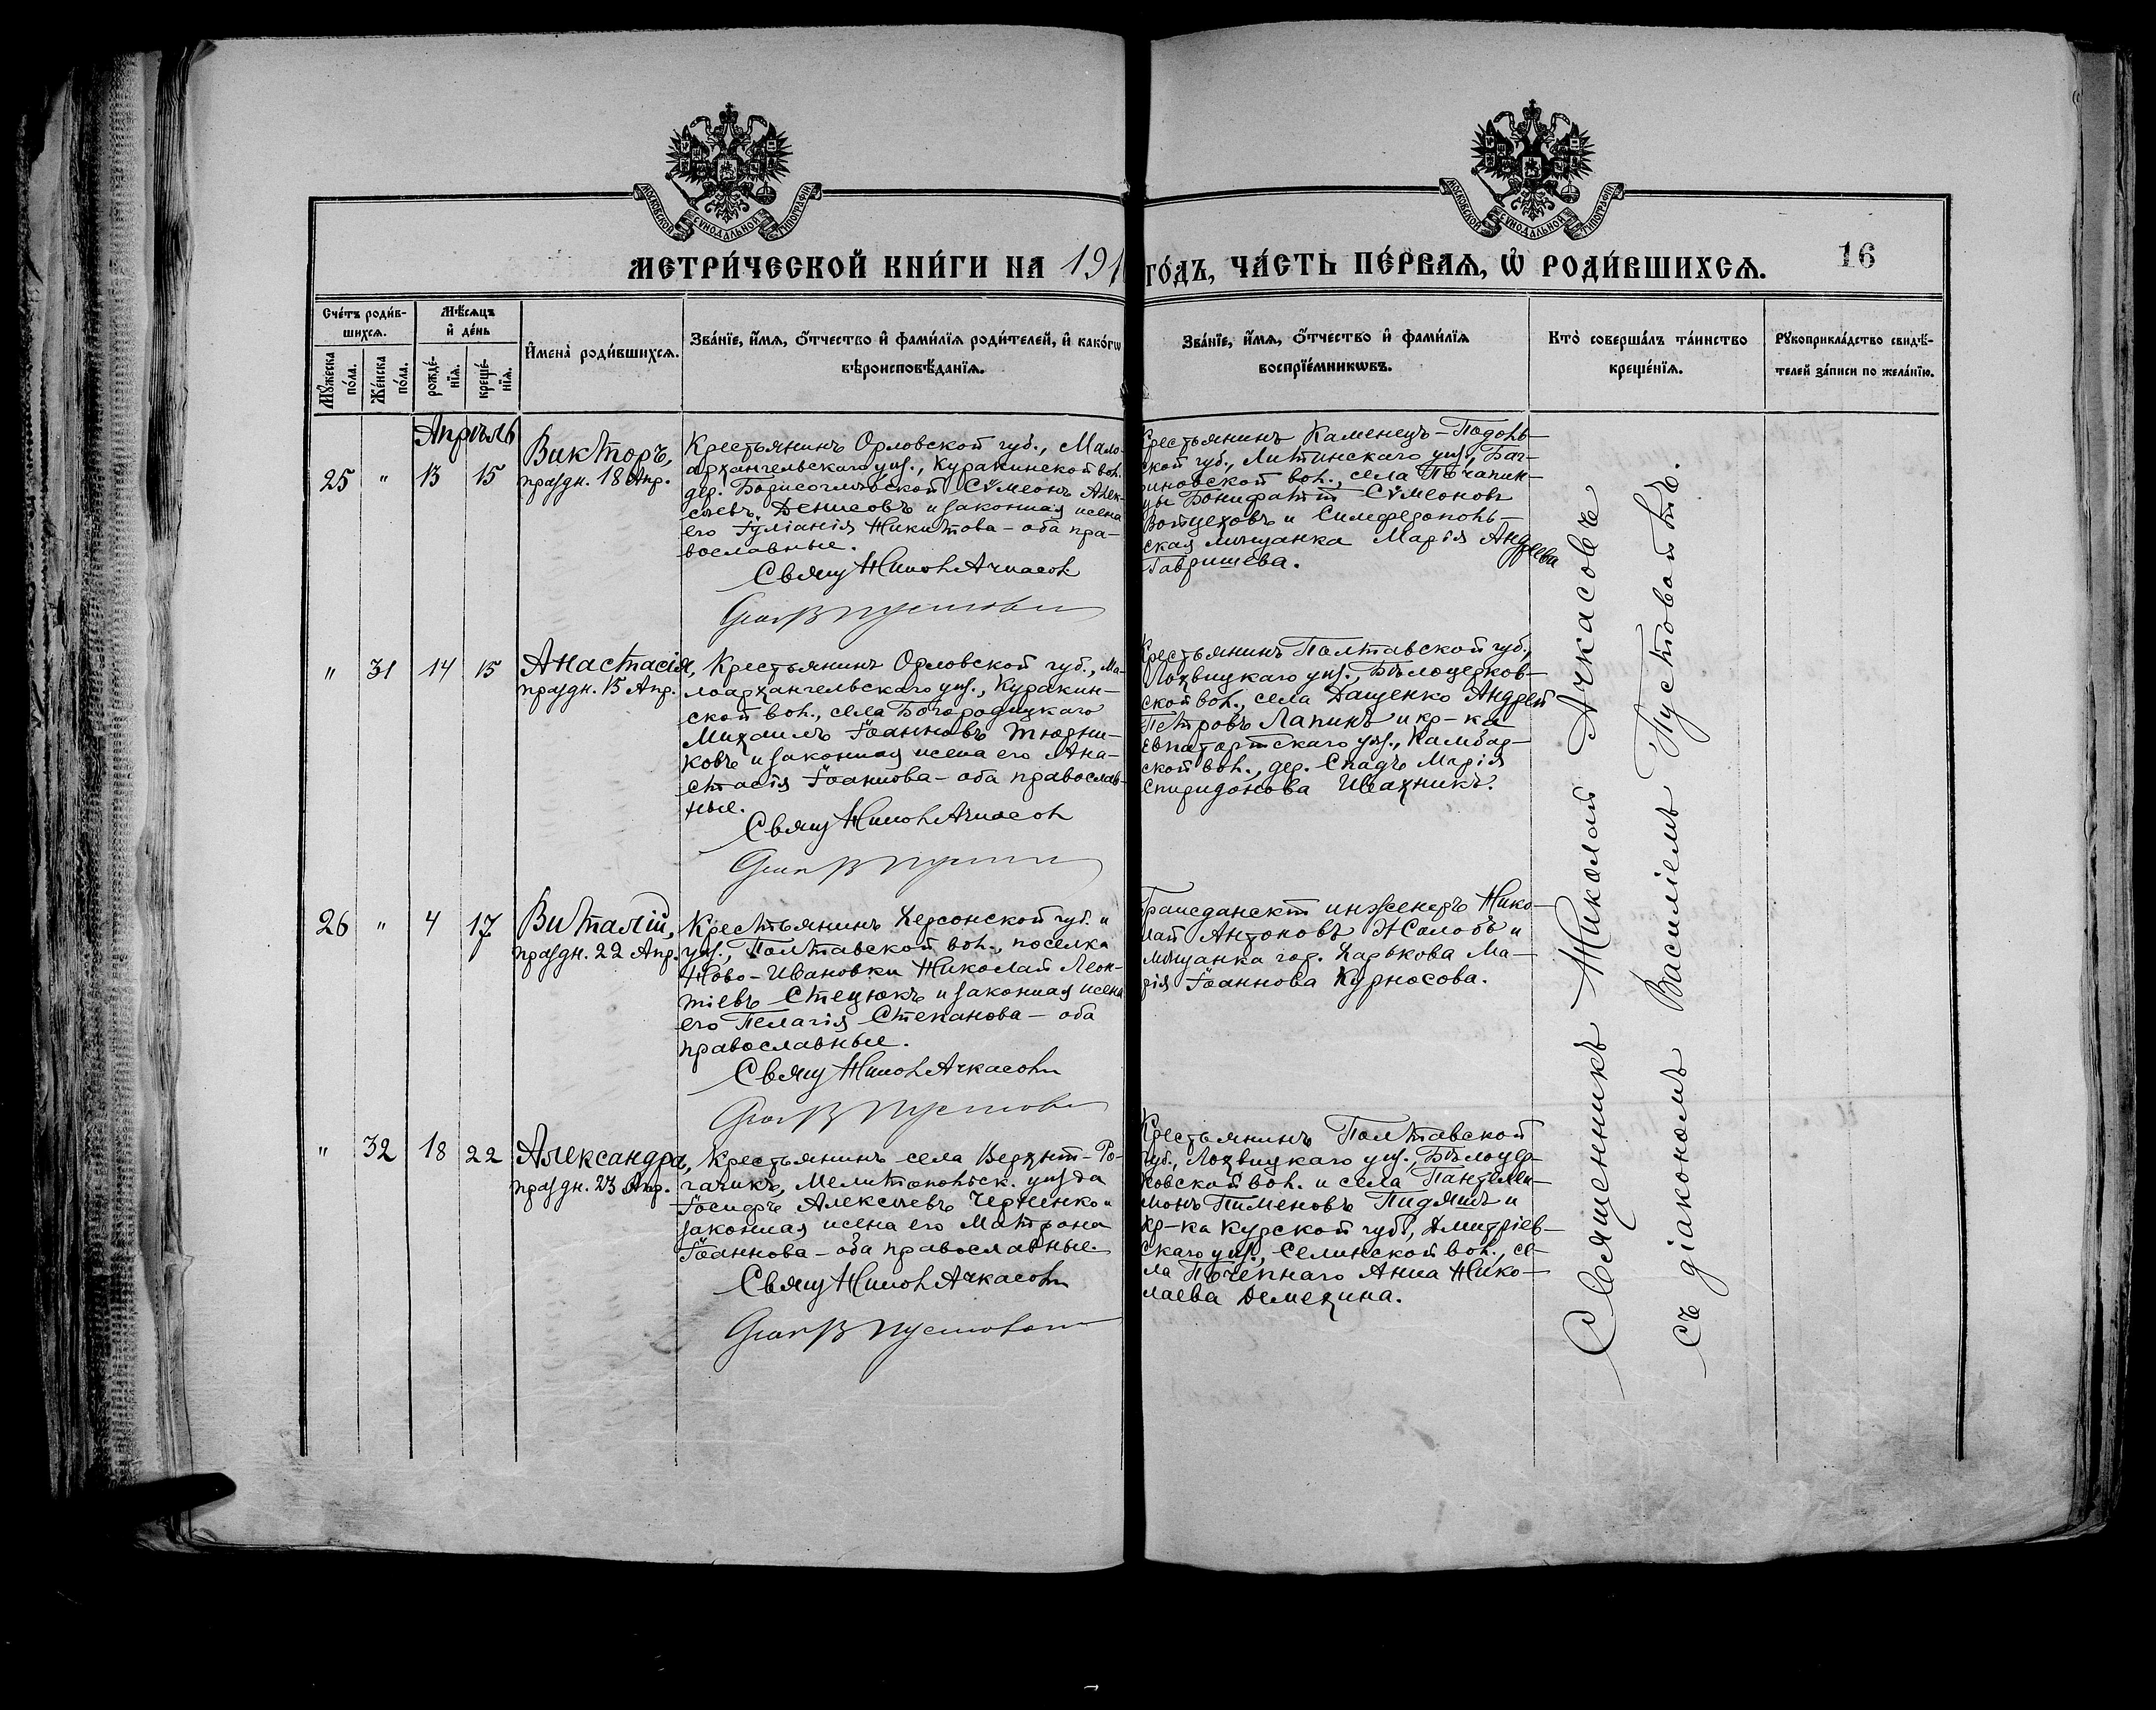 МОСКОВСКОЙ СУНОДАЛЬНОЙ ТИПОГРАФІИ
МОСКОВСКОЙ СУНОДАЛЬНОЙ ТИПОГРАФІИ
МЕТРИ́ЧЕСКОЙ КНИ́ГИ НА 191
ГО́ДЪ, ЧА́СТЬ ПЕ́РВАЯ, Ѡ҆ РОДИ́ВШИХСЯ.
16
Сче́тъ роди́в-
шихся.
Мꙋ́жеска по́ла.
Же́нска по́ла.
Мѣ́сяцъ
и҆ де́нь
рожде́-
нїя.
креще́-
нїя.
И҆мена̀ роди́вшихся.
Зва́нїе, и҆́мя, ѻ҆́тчество и҆ фами́лїя роди́телей, и҆ како́гѡ
вѣроисповѣ́данїя.
Зва́нїе, и҆́мя, ѻ҆́тчество и҆ фами́лїя
воспрїе́мникѡвъ.
Кто̀ соверша́лъ та́инство
креще́нїя.
Рꙋкоприкла́дство свидѣ́-
телей за́писи по жела́нїю.
Апрѣль
25 " 13 15
Викторъ,
праздн. 18 Апр.
Крестьянинъ Орловской губ., Мало-
архангельскаго уѣз., Куракинской вол.
дер. Борисоглѣбской Сѵмеонъ Алек-
сѣевъ Денисовъ и законная жена
его Іуліанія Никитова – оба пра-
вославные.
Свящ Никол Ачкасов
Крестьянинъ Каменецъ-Подоль-
ской губ., Литинскаго уѣз., Баг-
риновской вол., села Пѣчапин-
цы Бонифатій Сѵмеоновъ
Войцеховъ и Симферополь-
ская мѣщанка Марія Андреева
Гавришева.
" 31 14 15
Анастасія,
праздн. 15 Апр.
Крестьянинъ Орловской губ., Ма-
лоархангельскаго уѣз., Куракин-
ской вол., села Богородицкаго
Михаилъ Іоанновъ Тюрни-
ковъ и законная жена его Ана-
стасія Іоаннова – оба православ-
ные.
Свящ Никол Ачкасов
Крестьянинъ Полтавской губ.,
Лохвицкаго уѣз., Бѣлоцерков-
ской вол., села Дащенко Андрей
Петровъ Лапинъ и кр-ка
Евпаторійскаго уѣз., Камбар-
ской вол., дер. Спадъ Марія
Спиридонова Ивахникъ.
26 " 4 17
Виталій,
праздн. 22 Апр.
Крестьянинъ Херсонской губ. и
уѣз., Полтавской вол., поселка
Ново-Ивановки Николай Леон-
тіевъ Стецюкъ и законная жена
его Пелагія Степанова – оба
православные.
Свящ Никол Ачкасовъ
Гражданскій инженеръ Нико-
лай Антоновъ Жалобъ и
мѣщанка гор. Харькова Ма-
рія Іоаннова Курносова.
" 32 18 22
Александра,
праздн. 23 Апр.
Крестьянинъ села Верхній-Ро-
гачикъ, Мелитопольск. уѣзда
Іосифъ Алексѣевъ Черненко и
законная жена его Матрона
Іоаннова – оба православные.
Свящ Никол Ачкасовъ
Крестьянинъ Полтавской
губ., Лохвицкаго уѣз., Бѣлоцер-
ковской вол. и села Пантелей-
монъ Пименовъ Пидяшъ и
кр-ка Курской губ., Дмитріев-
скаго уѣз., Селинской вол., се-
ла Почепнаго Анна Нико-
лаева Демехина.
Священникъ Николай Ачкасовъ
съ діакономъ Василіемъ Пустовойтъ.